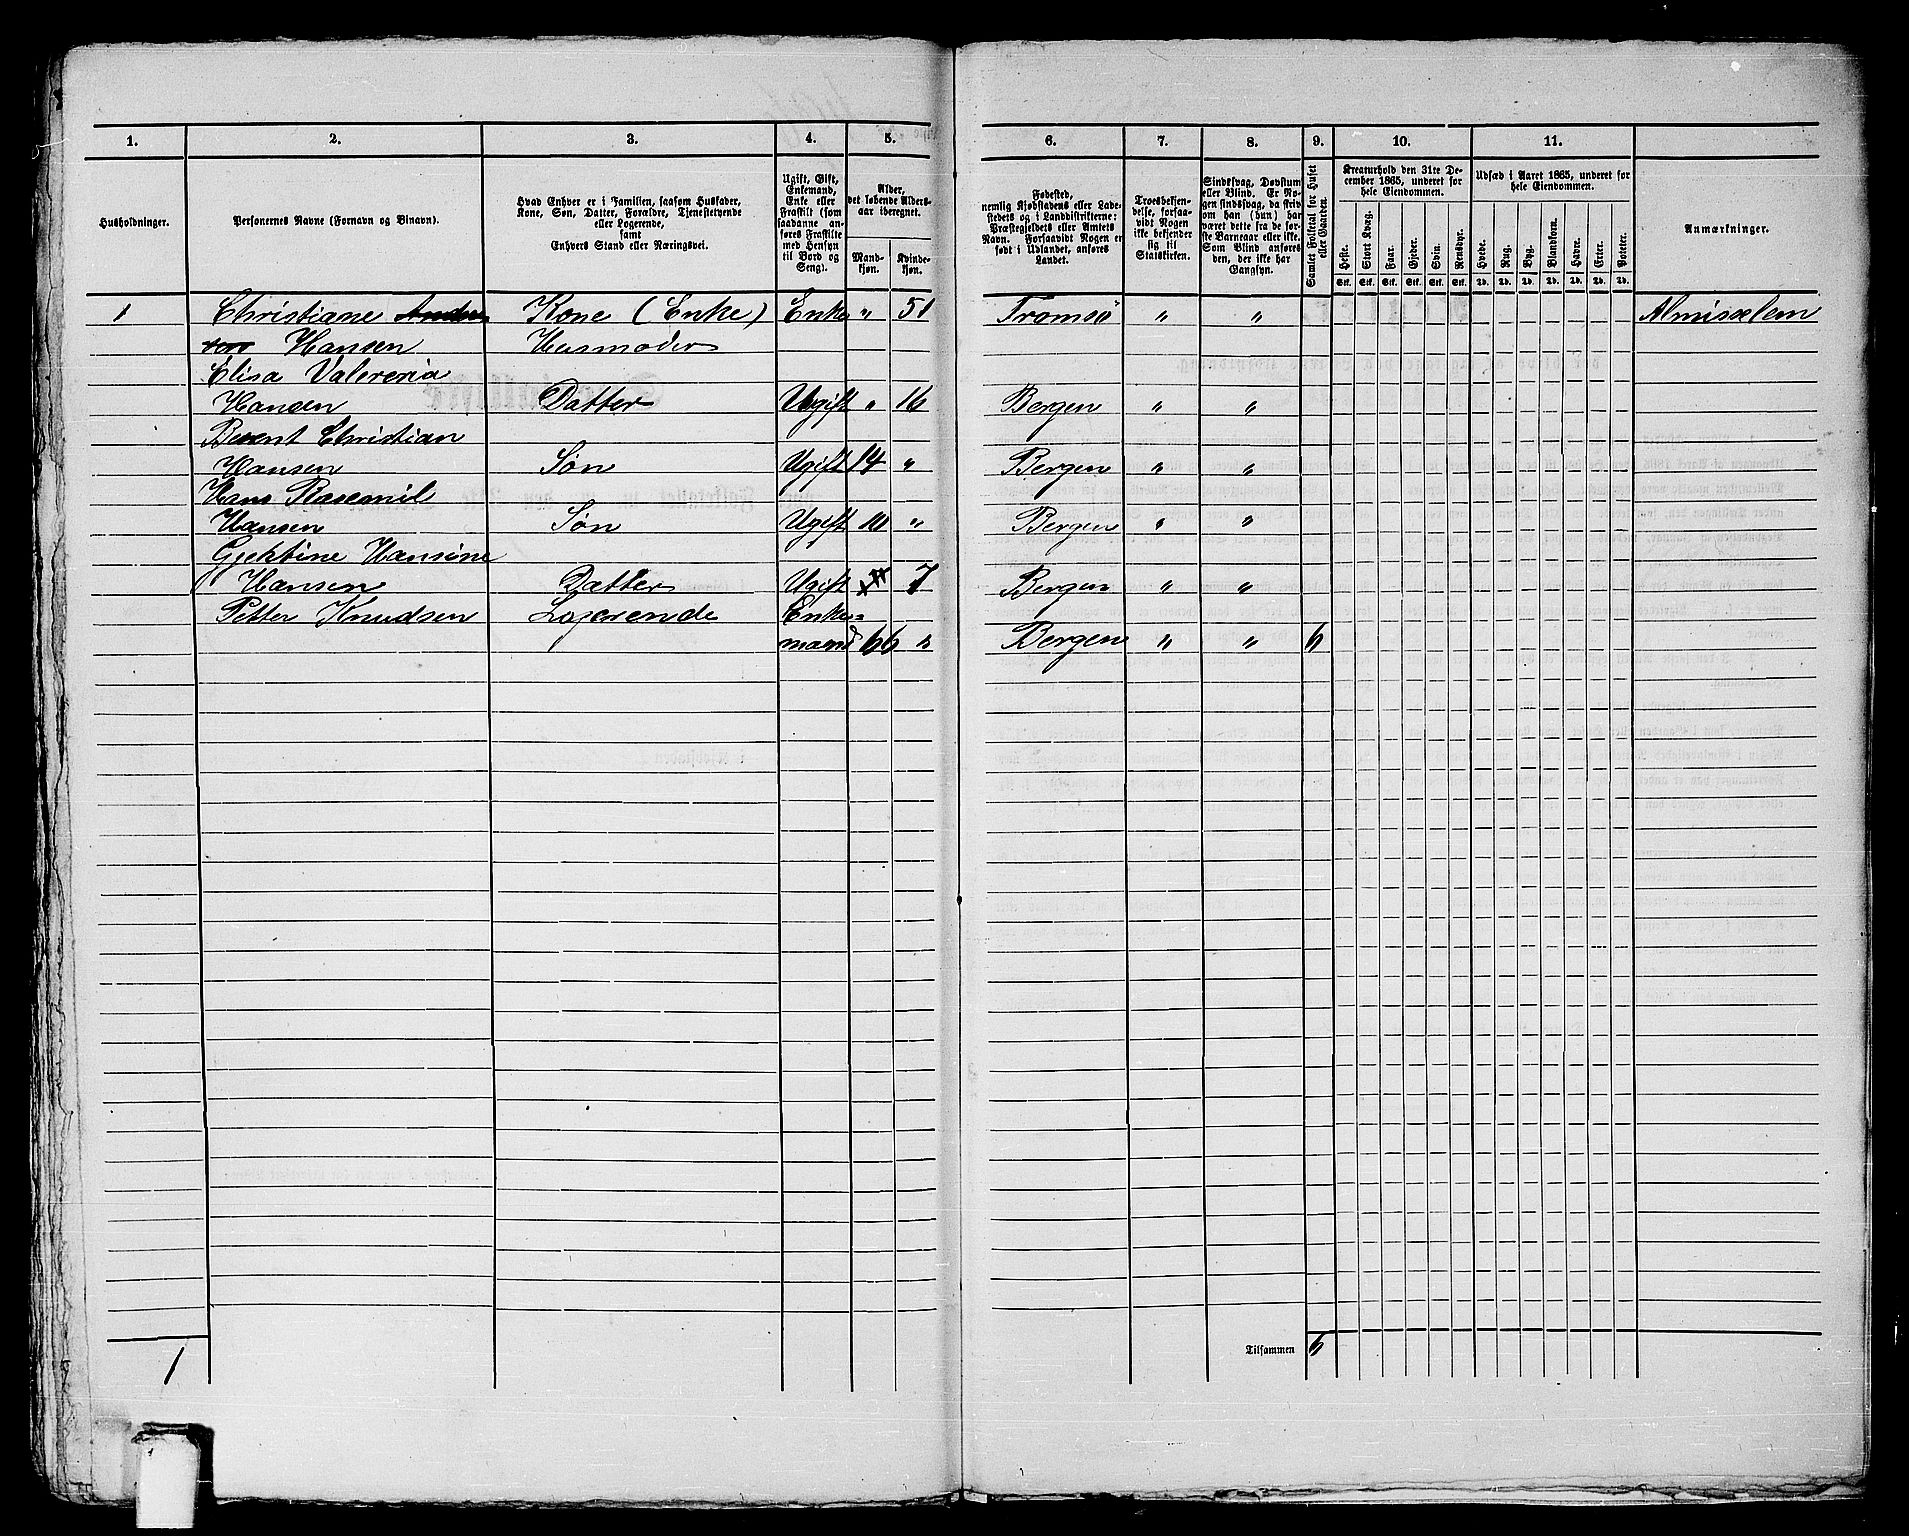 1. 2. 3. 4. 5. 6. 7. 8. 9. 10. 11.
Husholdninger.
Personernes Navne (Fornavn og Binavn).
Hvad Enhver er i Familien, saasom Husfader,
Kone, Søn, Datter, Forældre, Tjenestetyende
eller Logerende,
samt
Enhvers Stand eller Næringsvei.
Ugift, Gift,
Enkemand,
Enke eller
Fraskilt (som
saadanne an-
føres Fraskilte
med Hensyn
til Bord og
Seng).
Alder,
det løbende Alders-
aar iberegnet.
Mand-
kjøn.
Kvinde-
kjøn.
Fødested,
nemlig Kjøbstadens eller Lade-
stedets og i Landdistrikterne:
Præstegjeldets eller Amtets
Navn. Forsaavidt Nogen er
født i Udlandet, anføres
Landet.
Troesbekjen-
delse, forsaa-
vidt Nogen
ikke bekjender
sig til
Statskirken.
Sindssvag, Døvstum
eller Blind. Er No-
gen sindssvag, da skriv
om han (hun) har
været dette fra de før-
ste Barneaar eller ikke.
Som Blind anføres
den, der ikke har
Gangsyn.
Samlet Folketal for Huset
eller Gaarden.
Kreaturhold den 31te De-
cember 1865, underet for
hele Eiendommen.
Heste. Stort Kvæg. Faar. Gjeder. Svin. Rensdyr.
Stk. Stk. Stk. Stk. Stk. Stk.
Udsæd i Aaret 1865, underet for
hele Eiendommen.
Hvede. Rug. Byg. Blandkorn. Havre. Erter. Poteter.
Td. Td. Td. Td. Td. Td. Td.
Anmærkninger.
1 Christiane Kone (Enke) Enke " 51 Tromsö " " Almisselem
Hansen Husmoder
Elisa Valereria
Hansen Datter Ugift " 16 Bergen " "
Berent Christian
Hansen Søn Ugift 14 " Bergen " "
Hans Rasemil
Hansen Søn Ugift 10 " Bergen " "
Gjektine Hansine
Hansen Datter Ugift 7 Bergen " "
Petter Knudsen Logerende Enke=
mand 66 " Bergen " " 6
Tilsammen 6
1